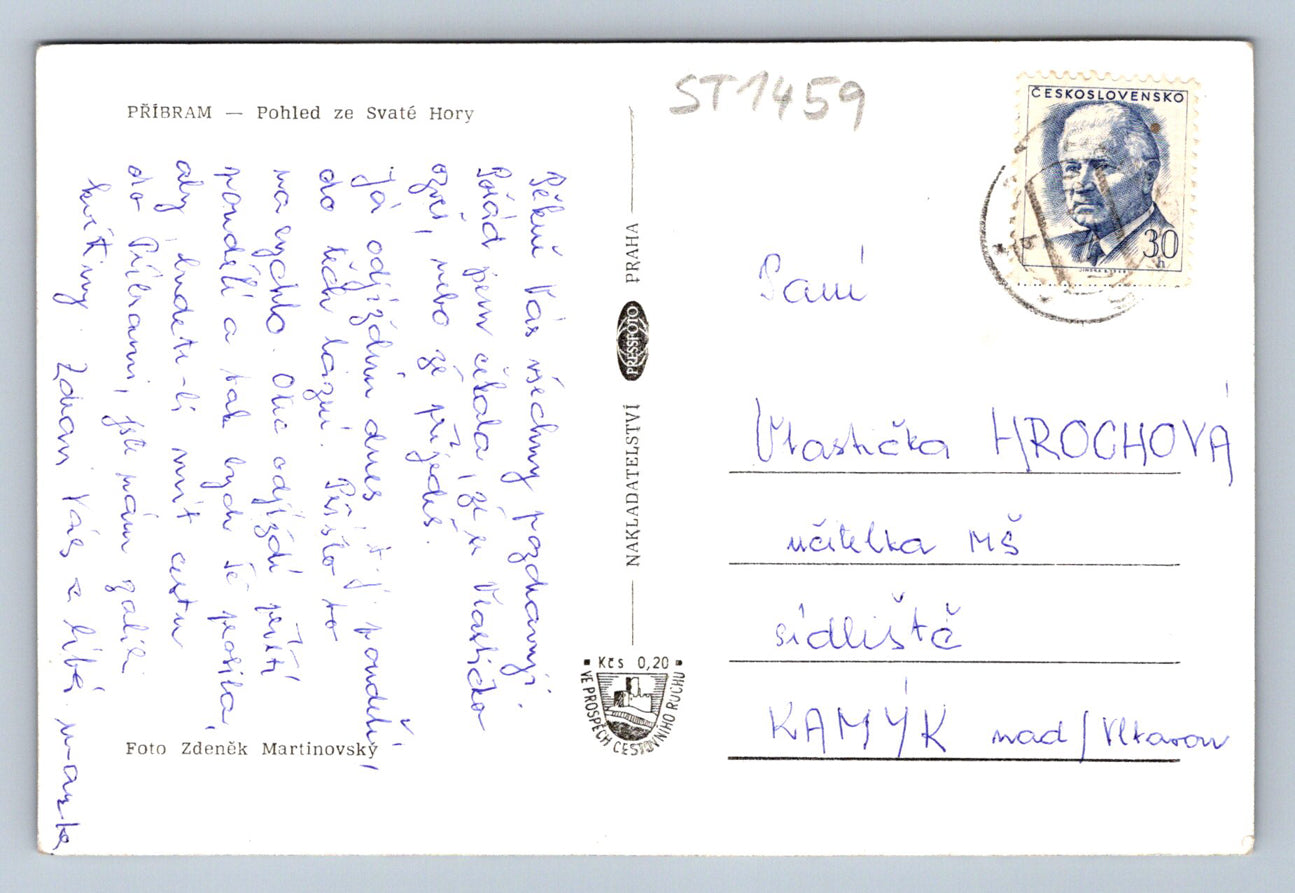 PŘÍBRAM — Pohled ze Svaté Hory
ST1459
ČESKOSLOVENSKO
30
h
Pěkně Vás všechny pozdravuji.
Pořád jsem čekala, že se Vlastičko
ozveš, nebo že přijedeš.
Já odjíždím dnes t.j. pondělí,
do těch lázní. Píši to
na rychlo. Otec odjíždí příští
pondělí a tak bych Tě prosila,
aby, budete-li mít cestu
do Příbrami, jste nám zalili
květiny. Zdraví Vás a líbá
Foto Zdeněk Martinovský
NAKLADATELSTVÍ PRESSFOTO PRAHA
Kčs 0,20
VE PROSPĚCH CESTOVNÍHO RUCHU
Paní
Vlastička HROCHOVÁ
učitelka MŠ
sídliště
KAMÝK nad/Vltavou